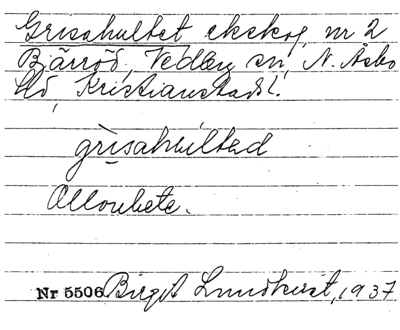 Grisahultet ekskog, nr 2
Bjärröd, Vedby sn, N. Åsbo
hd, Kristianstads l.
grisahultəd
Allonbete.
Nr 5506 Birgit Lundkvist, 1937